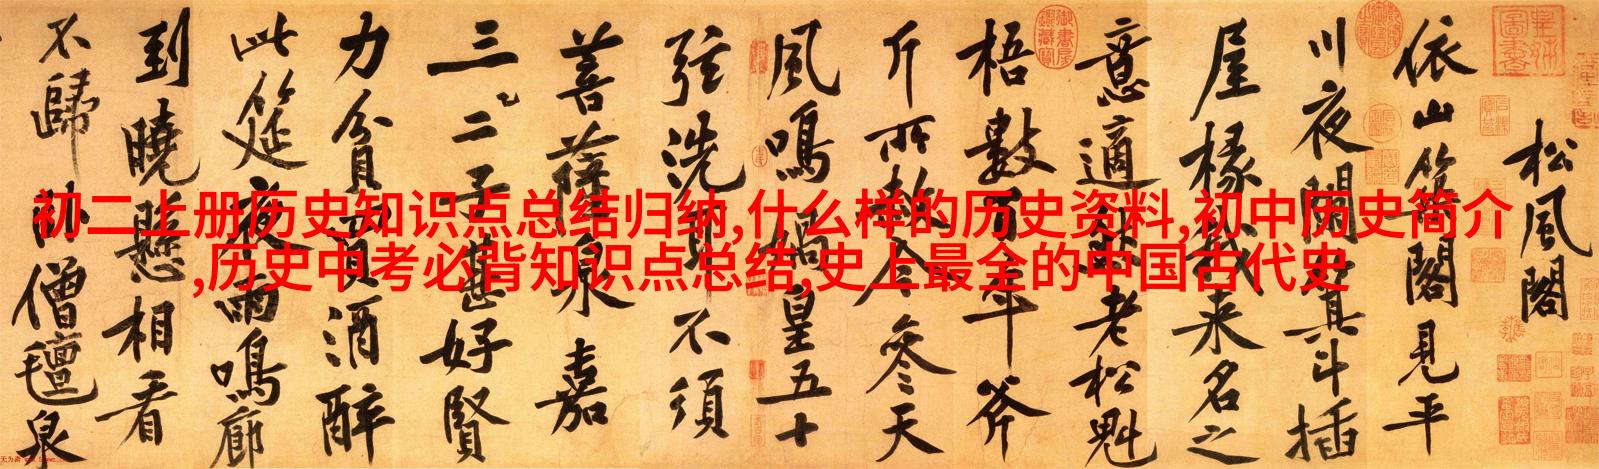 初二上册历史知识点总结归纳,什么样的历史资料,初中历史简介
,历史中考必背知识点总结,史上最全的中国古代史
松風閣
依山築閣見平
川夜闌箕斗插
屋椽我來名之
意適然老松魁
梧數百年斧
斤所赦今參天
風鳴媧皇五十
弦洗耳不須
菩薩泉嘉
三二子甚好賢
力貧買酒醉
此筵夜雨鳴廊
到曉懸相看
不歸卧僧氈泉